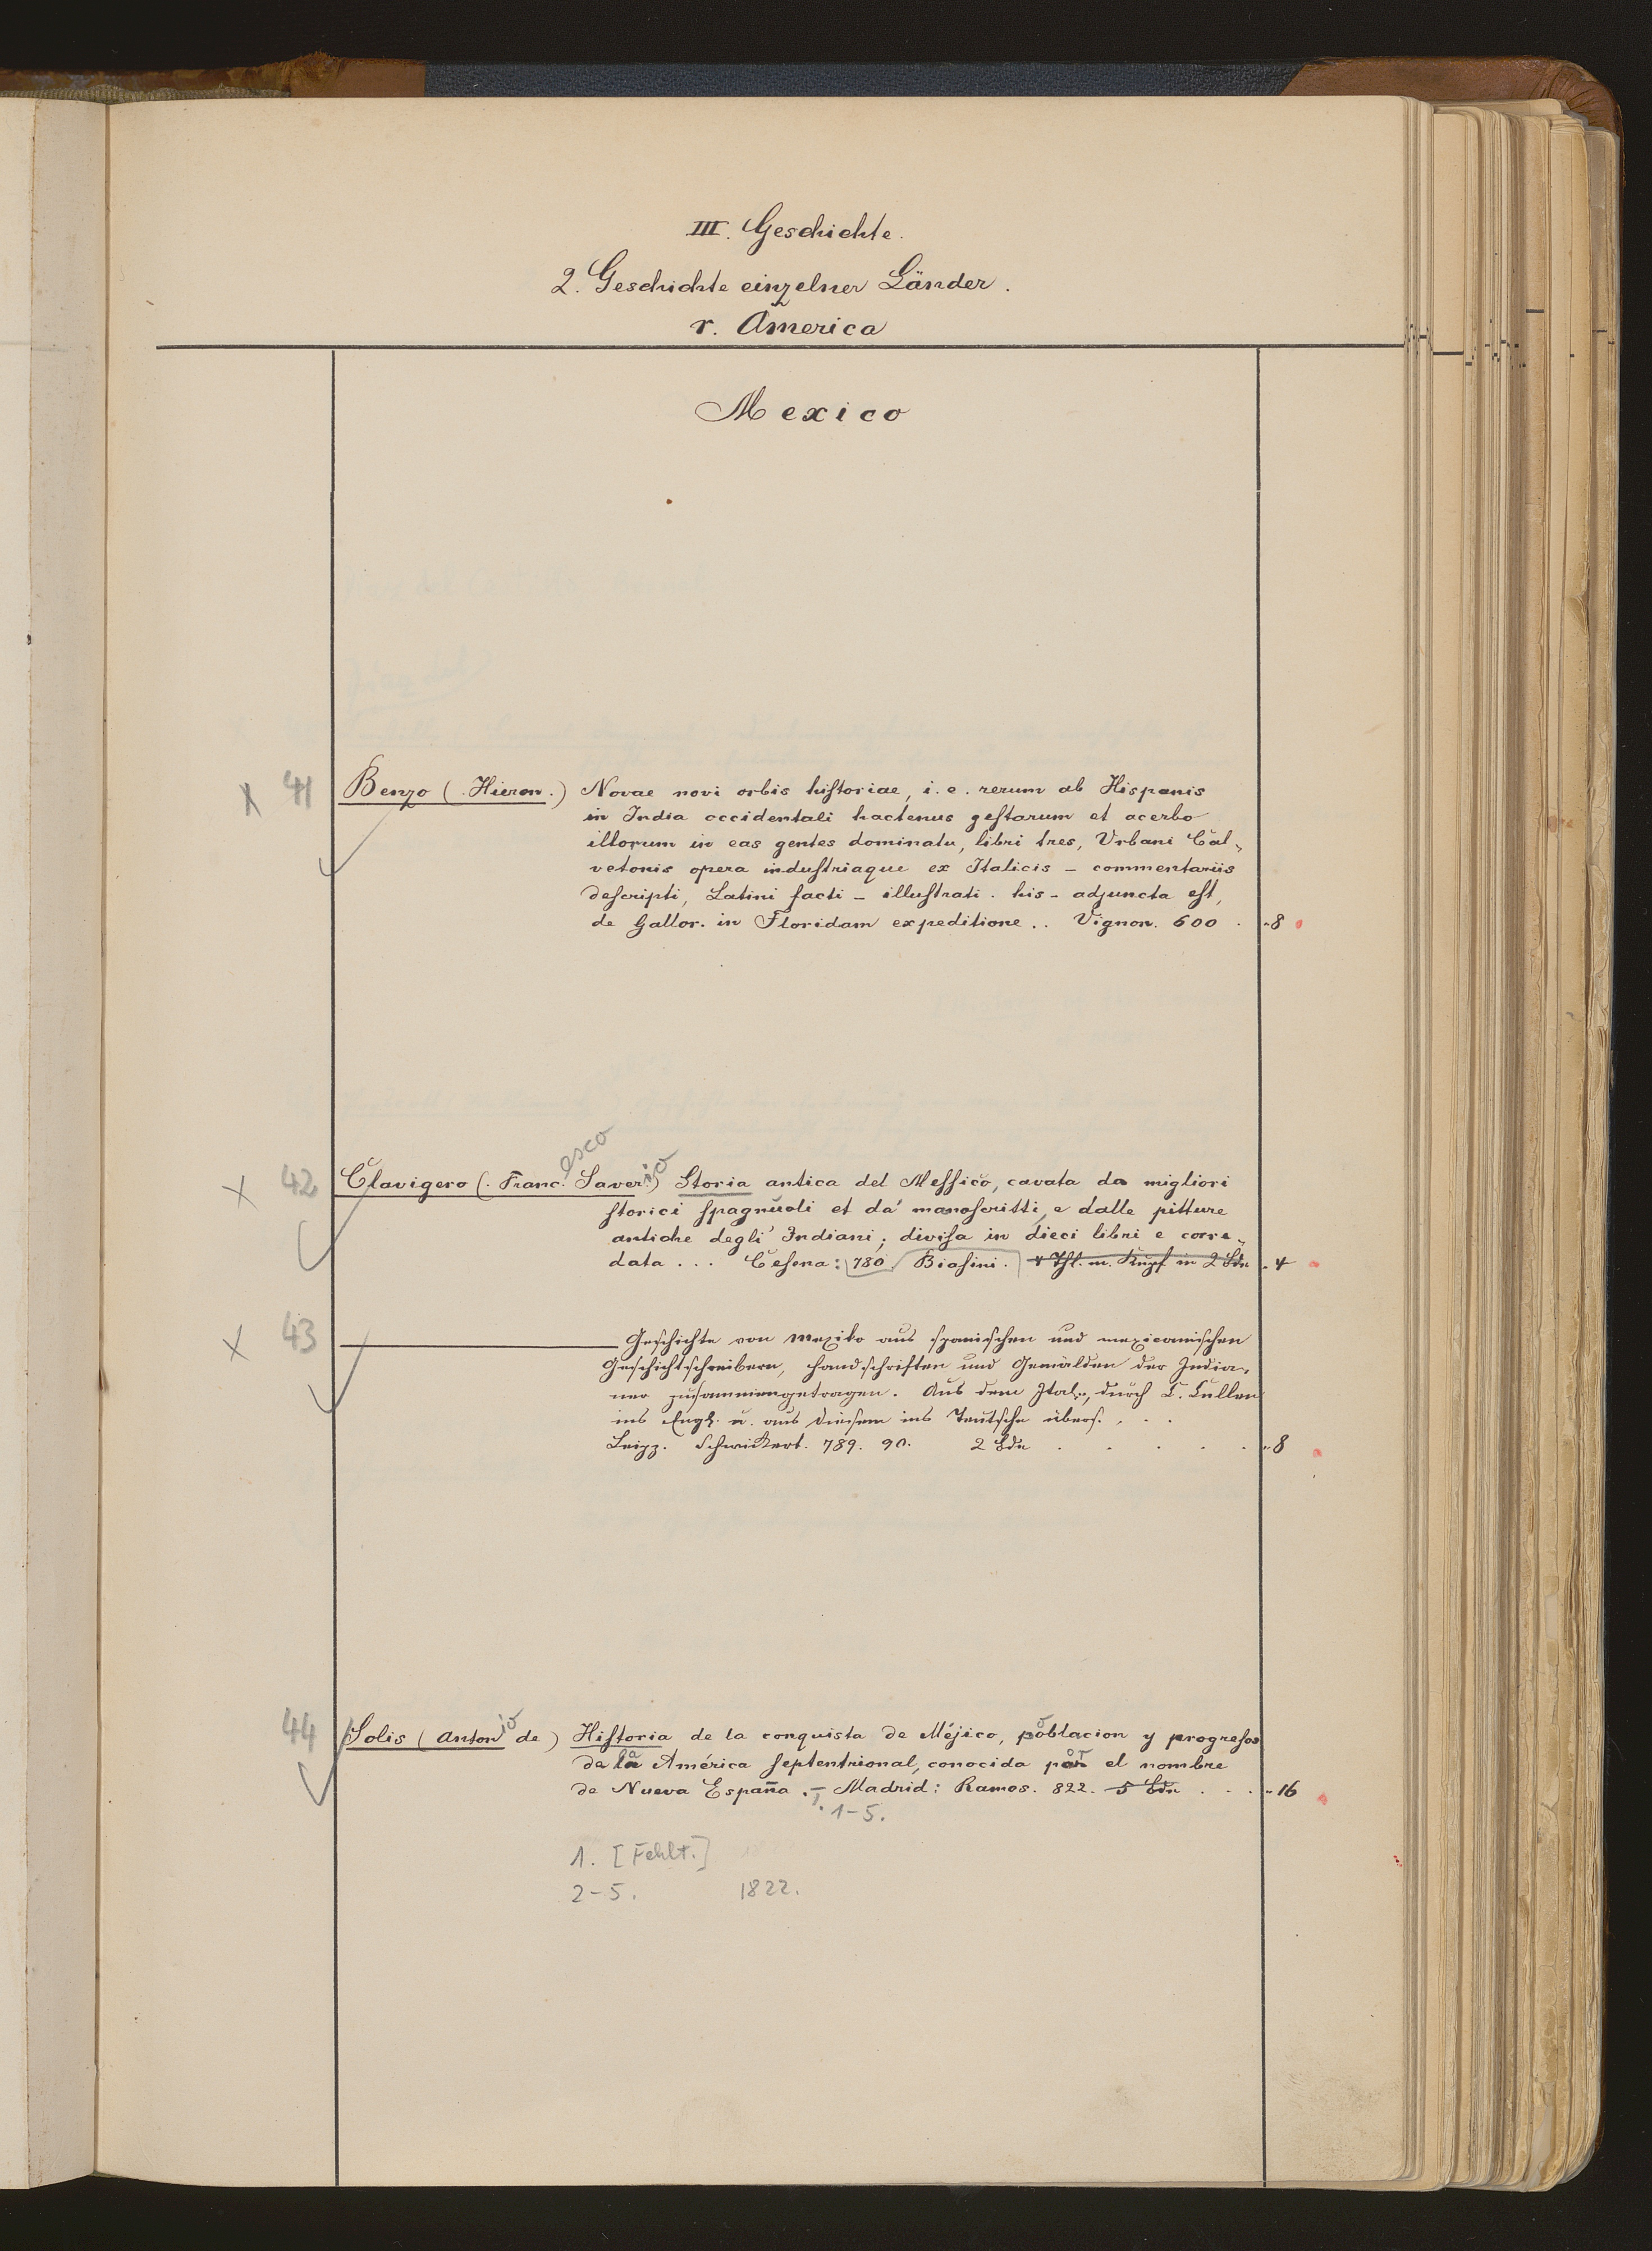 III. Geschichte.
2. Geschichte einzelner Länder.
r. America
Mexico
X 41 Benzo (. Hieron.) Novae novi orbis historiae, i. e. rerum ab Hispanis
in India occidentali hactenus gestarum et acerbo
illorum in eas gentes dominatu, libri tres, Urbani Cal-
vetonis opera industriaque ex Italicis - commentariis
descripti, Latini facti - illustrati. his - adjuncta est,
de Gallor. in Floridam expeditione .. Vignon. 600 . 8
esco io
X 42 Clavigero (. Franc. Saver.) Storia antica del Messico, cavata da migliori
storici spagnuoli et da' manoscritti, e dalle pitture
antiche degli Indiani; divisa in dieci libri e corre-
data ... Cesena: 780 Biasini. 4 Thl. m. Kupf in 2 Bdn 4
X 43 Geschichte von Mexiko aus spanischen und mexicanischen
Geschichtschreibern, Handschriften und Gemälden der India-
ner zusammengetragen. Aus dem Ital., durch C. Cullen
ins Engl. u. aus diesem ins Teutsche übers. . . .
Leipz. Schwickert. 789. 90. 2 Bde . . . . . 8
io
44 Solis (Anton de) Historia de la conquista de Méjico, poblacion y progresos
de la América septentrional, conocida por el nombre
de Nueva España. - Madrid: Ramos. 822. 5 Bde . . . 16
T. 1-5.
1. [Fehlt.]
2-5. 1822.